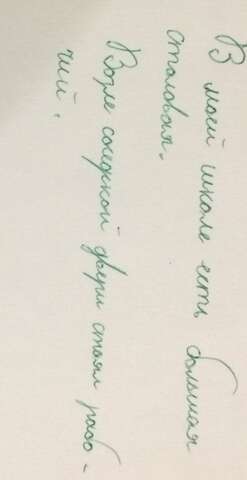 В моей школе есть большая
столовая.
Возле соседней двери стоял рабо-
чий.